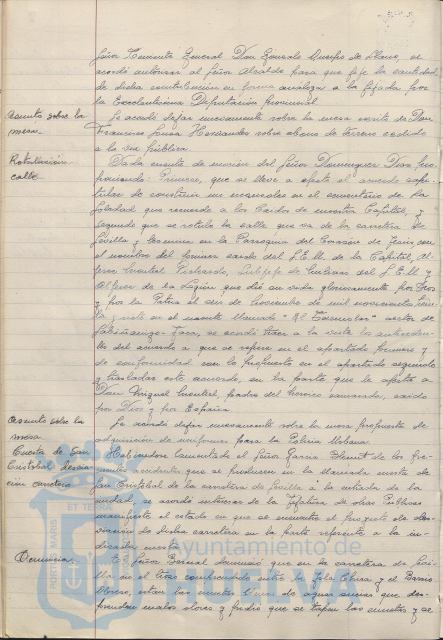 Señor Teniente General Don Gonzalo Queipo de Llano, se
acordó autorizar al Señor Alcalde para que fije la cantidad
de dicha contribución en forma análoga a la fijada por
la Excelentísima Diputación provincial.
Asunto sobre la
mesa.
Se acordó dejar nuevamente sobre la mesa escrito de Don
Francisco Hernández sobre abono de terreno cedido
a la vía pública.
Rotulación
calle.
Dada cuenta de moción del Señor Domínguez
Primero, que se lleve a efecto el acuerdo
de construir un mausoleo en el cementerio de la
Soledad que recuerde a los Caidos de nuestra Capital, y
segundo que se rotule la calle que va de la carretera de
Sevilla y termina en la Parroquia del Corazón de Jesús, con
el nombre del primer caido del S.E.U. de la Capital,
Subjefe de Centuria del S.E.U. y
Alférez de la Legión que dió su vida gloriosamente por Dios
y por la Patria el seis de Noviembre de mil novecientos
en el monte llamado sector de
se acordó traer a la vista los antecedentes
del acuerdo a que se refiere en el apartado primero y
de conformidad con lo propuesto en el apartado segundo
y trasladar este acuerdo, en la parte que le afecta a
Don Miguel padre del heroico camarada, caido
por Dios y por España.
Asunto sobre la
mesa
Se acordó dejar nuevamente sobre la mesa propuesta de
adquisición de uniformes para la Policia Urbana.
Cuesta de San
Cristobal
carretera
Habiendose lamentado el Señor Garcia de los fre-
cuentes accidentes que se producen en la llamada cuesta de
San Cristobal de la carretera de Sevilla a la entrada de la
ciudad, se acordó interesar de la Jefatura de Obras Públicas
manifieste el estado en que se encuentra el proyecto de des-
viación de dicha carretera en la parte referente a la in-
dicada cuesta.
Denuncia
El Señor Bernal denunció que en la carretera de
en el trozo comprendido entre la Isla Chica y el Barrio
Obrero, están las cunetas llenas de aguas sucias que des-
prenden malos olores y pidió que se tapen las cunetas y se
PORTUS MARIS
ET TERRAE
Ayuntamiento de
HUELVA